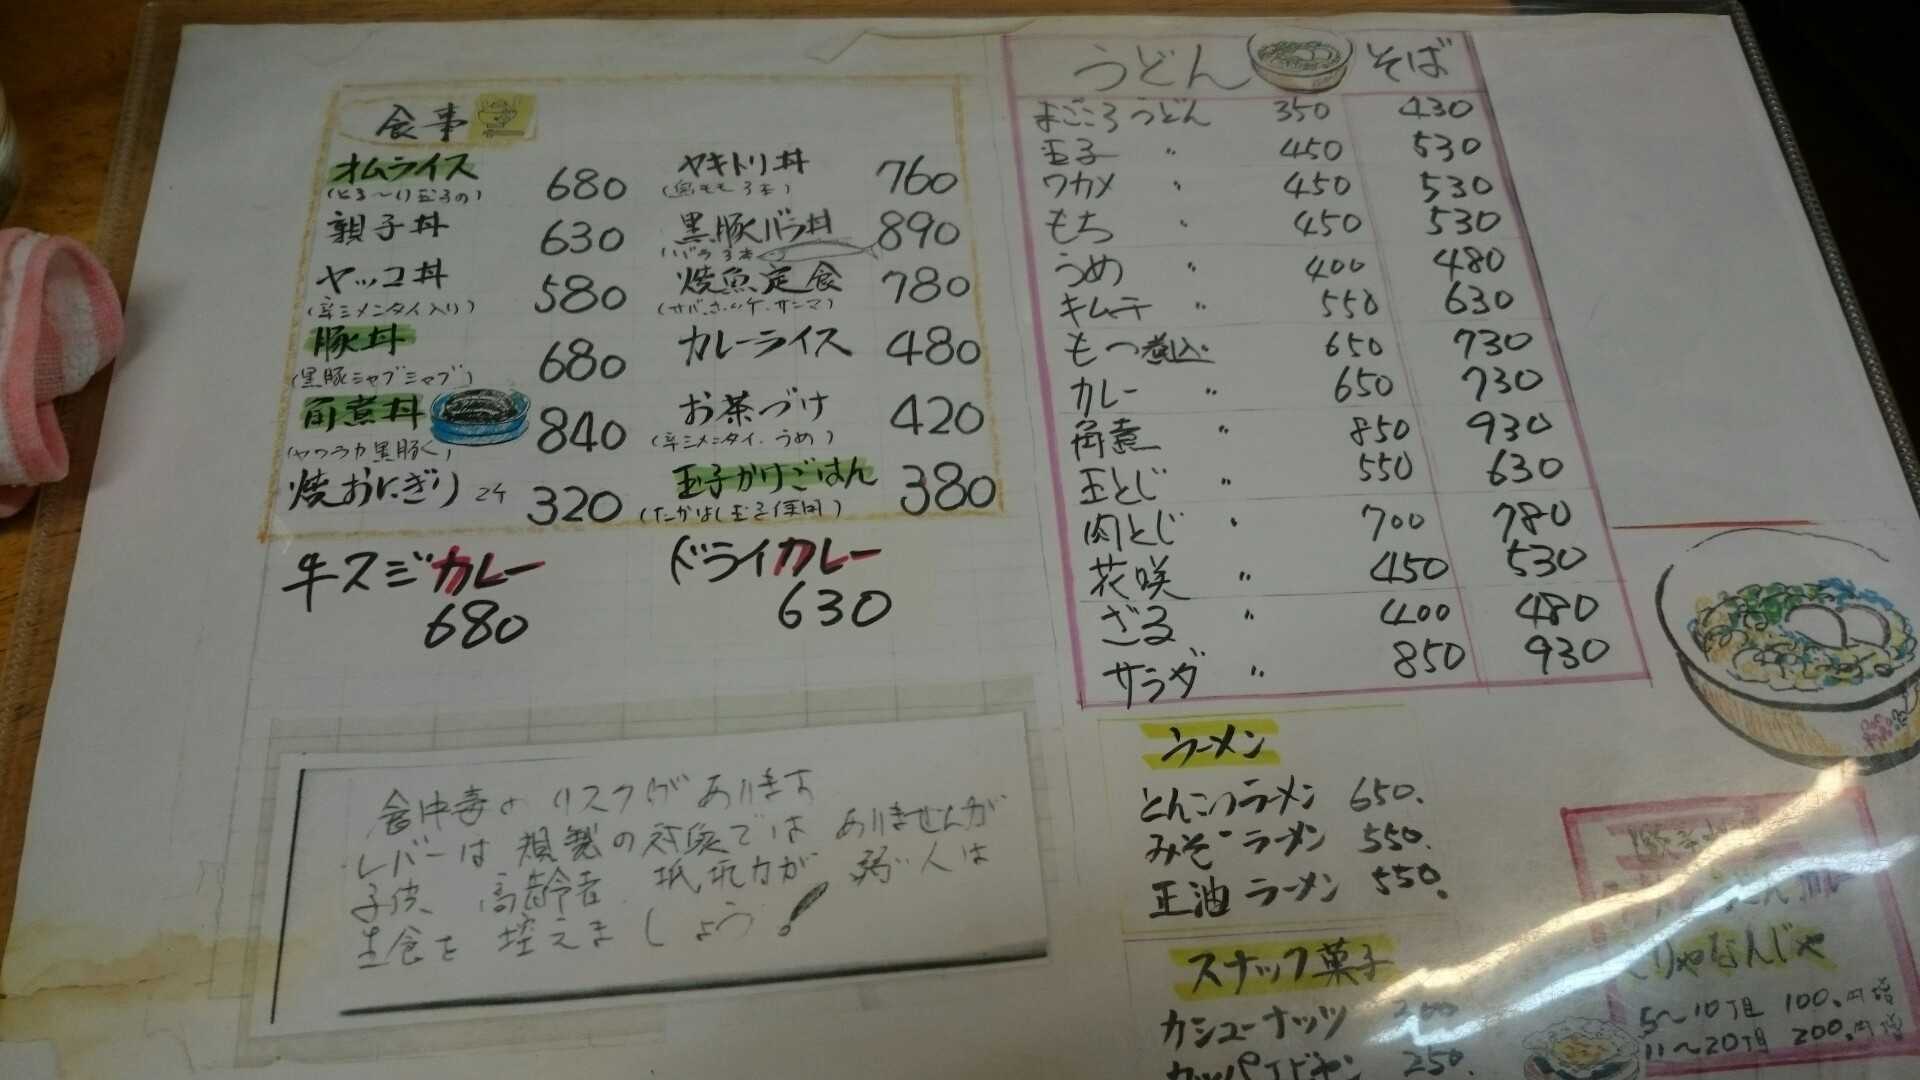 食事
オムライス 680
(とろ〜り玉子の)
親子丼 630
ヤッコ丼 580
(辛シメンタイ入り)
豚丼 680
(黒豚シャブシャブ)
角煮丼 840
(ヤワラカ黒豚く)
焼おにぎり 2ケ 320
ヤキトリ丼 760
(鳥モモ3本)
黒豚バラ丼 890
(バラ3本)
焼魚定食 780
(サバ.ホッケ.サンマ)
カレーライス 480
お茶づけ 420
(辛シメンタイ.うめ)
玉子かけごはん 380
(たかはし玉子使用)
牛スジカレー
680
ドライカレー
630
食中毒のリスクがあります
レバーは規製の対象ではありませんが
子供 高齢者 抵抗力が弱い人は
生食を控えましょう!
うどん そば
まごころうどん 350 430
玉子 〃 450 530
ワカメ 〃 450 530
もち 〃 450 530
うめ 〃 400 480
キムチ 〃 550 630
もつ煮込〃 650 730
カレー 〃 650 730
角煮 〃 850 930
玉とじ 〃 550 630
肉とじ 〃 700 780
花咲 〃 450 530
ざる 〃 400 480
サラダ 〃 850 930
ラーメン
とんこつラーメン 650.
みそラーメン 550.
正油ラーメン 550.
スナック菓子
カシューナッツ 200
250.
こりゃなんじゃ
5〜10丁目 100.円増
11〜20丁目 200.円増